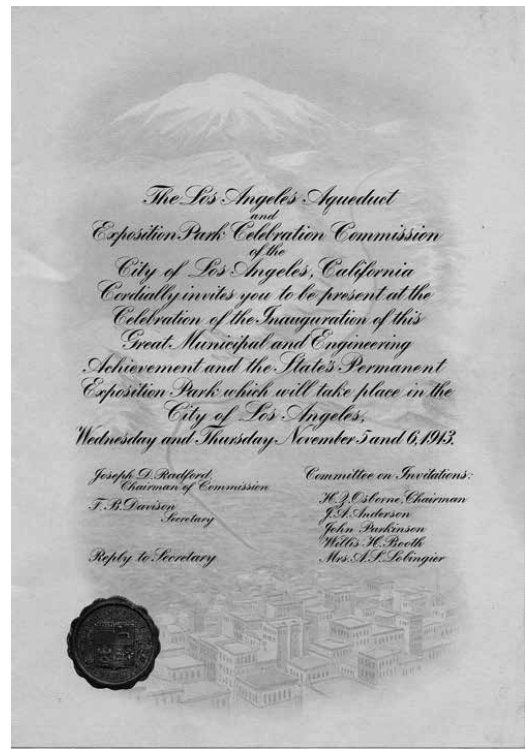 The Los Angeles Aqueduct
and
Exposition Park Celebration Commission
of the
City of Los Angeles, California
Cordially invites you to be present at the
Celebration of the Inauguration of this
Great Municipal and Engineering
Achievement and the State's Permanent
Exposition Park which will take place in the
City of Los Angeles,
Wednesday and Thursday November 5 and 6, 1913.
Joseph D. Radford,
Chairman of Commission
F. B. Davison
Secretary
Reply to Secretary
Committee on Invitations:
H. Z. Osborne, Chairman
J. A. Anderson
John Parkinson
Willis H. Booth
Mrs. A. S. Lobingier